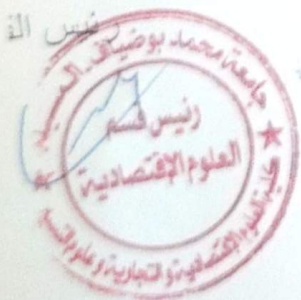 رئيس الق
جامعة محمد بوضياف المسيلة
رئيس قسم
العلوم الإقتصادية
كلية العلوم الإقتصادية و التجارية و علوم التسيير